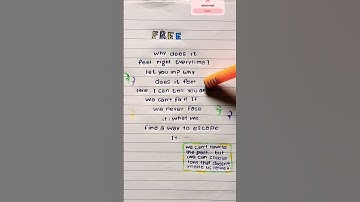 FREE
why does it
feel right everytime I
let you in? why
does it feel
like I can tell you
we can't fix it If
we never face
it. what we
find a way to escape
It
we can't
the past but
we can choose